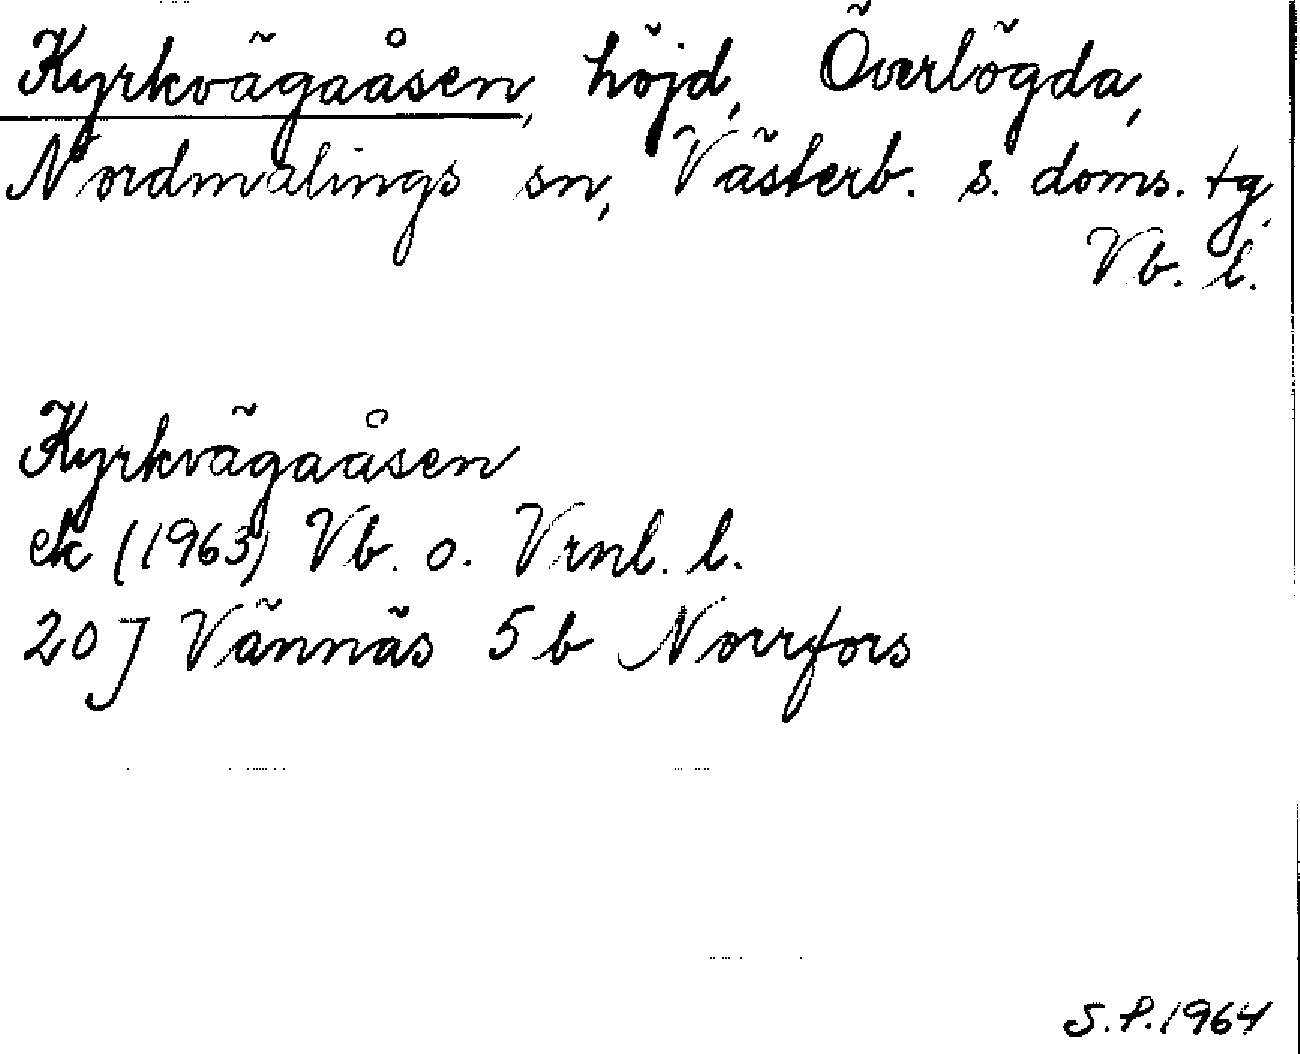 Kyrkvägaåsen, höjd, Överlögda,
Nordmalings sn, Västerb. s. doms. tg,
Vb. l.
Kyrkvägaåsen
ek (1963) Vb. o. Vrnl. l.
20 J Vännäs 5 b Norrfors
S.P. 1964